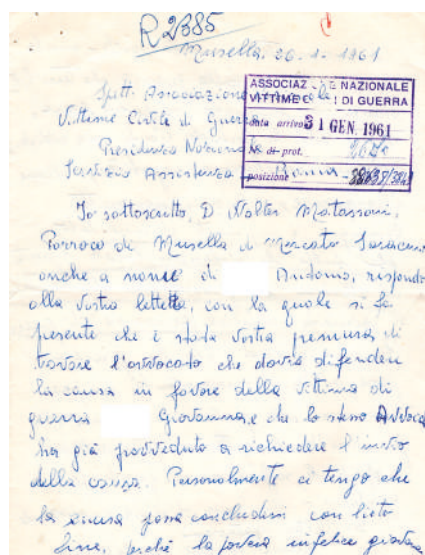 R 2385
Musella, 26.1.1961
Spett. Associazione Nazionale
Vittime Civile di Guerra
Presidenza Nazionale
Servizio Assistenza Roma
ASSOCIAZ NE NAZIONALE
VITTIME C I DI GUERRA
data arrivo 31 GEN. 1961
N. di prot.
posizione
Io sottoscritto, D Walter Matassoni,
Parroco di Musella di Mercato Saraceno
anche a nome di Antonio, rispondo
alla Vostra lettetta, con la quale si fa
presente che è stata Vostra premura di
trovare l'avvocato che dovrà difendere
la causa in favore della vittima di
guerra Giovanna, e che lo stesso Avvoca
ha già provveduto a richiedere l'invio
della causa. Personalmente ci tengo che
la causa possa concludersi con lieto
fine, perchè la povera infelice giovane